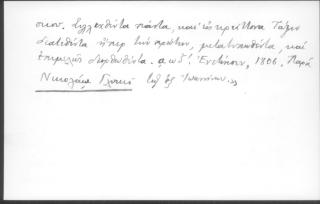 σκου. Συλλεχθέντα πάντα, καὶ εἰς κρείττονα τάξιν
διατεθέντα ἤπερ τὴν πρώτην, μετατυπωθέντα, καὶ
ἐπιμελῶς διορθωθέντα. αωδ'. Ἐνετίησιν, 1806. Παρὰ
Νικολάῳ Γλυκεῖ τῷ ἐξ Ἰωαννίνων.